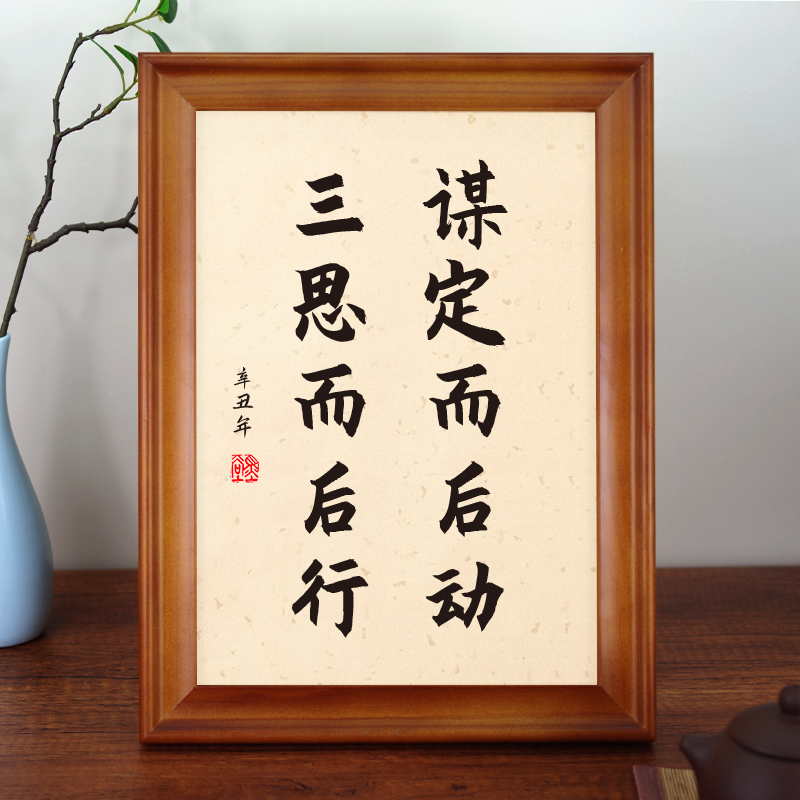 谋定而后动
三思而后行
辛丑年